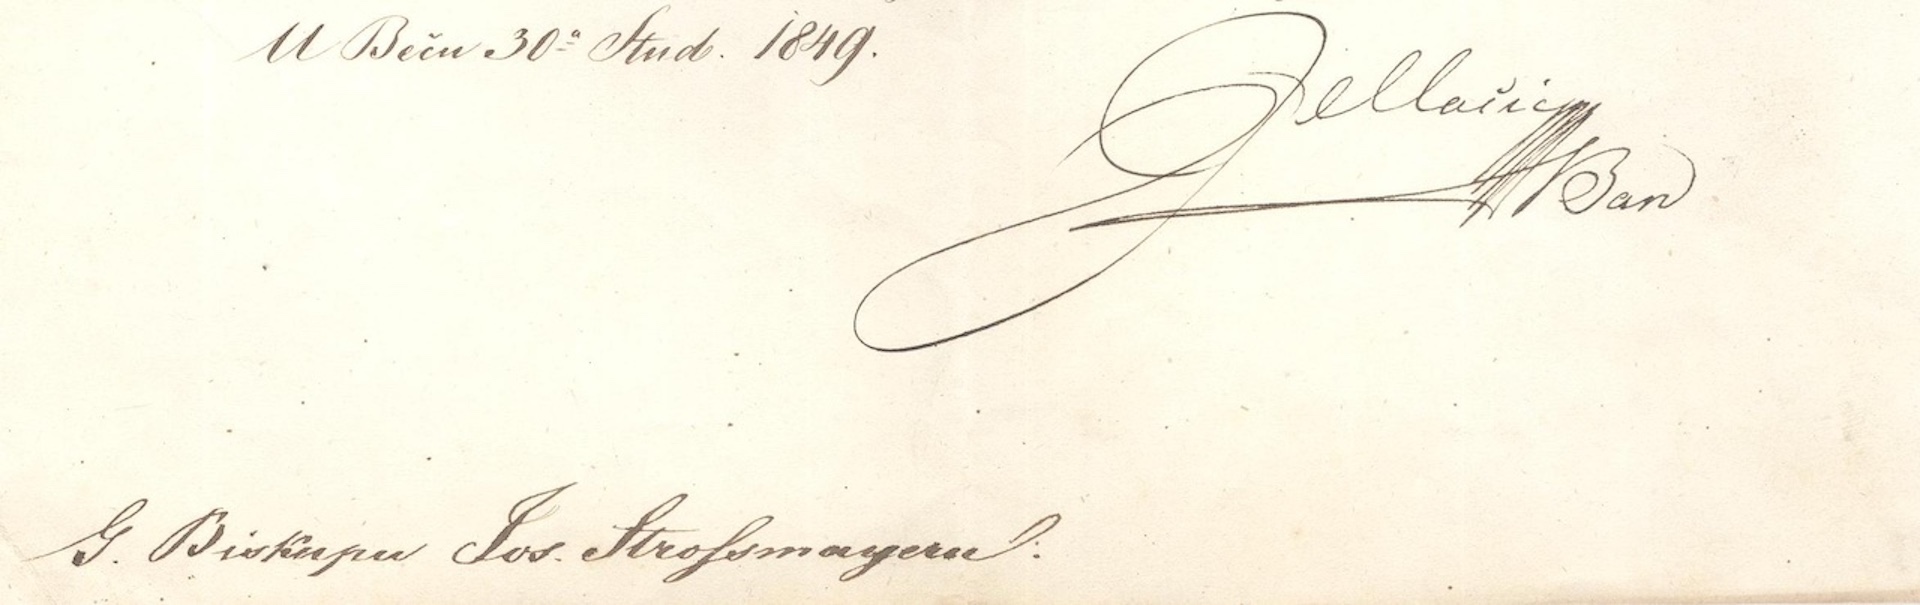 U Beču 30ª Stud. 1849.
Jellačić
Ban
G. Biskupu Jos. Stroſsmayeru.